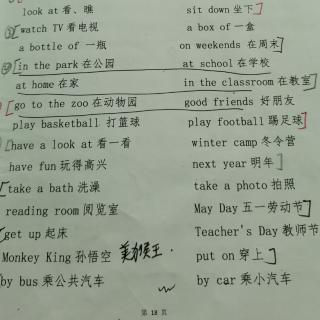 look at 看、瞧 sit down 坐下
watch TV 看电视 a box of 一盒
a bottle of 一瓶 on weekends 在周末
in the park 在公园 at school 在学校
at home 在家 in the classroom 在教室
go to the zoo 在动物园 good friends 好朋友
play basketball 打篮球 play football 踢足球
have a look at 看一看 winter camp 冬令营
have fun 玩得高兴 next year 明年
take a bath 洗澡 take a photo 拍照
reading room 阅览室 May Day 五一劳动节
get up 起床 Teacher's Day 教师节
Monkey King 孙悟空 美猴王. put on 穿上
by bus 乘公共汽车 by car 乘小汽车
第 18 页